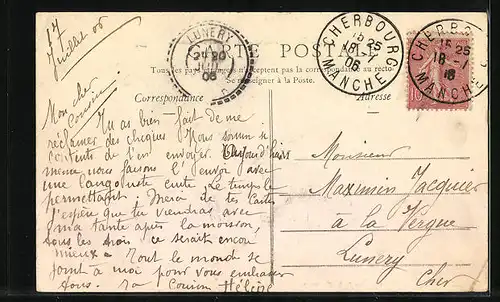 17
Juillet 06
LUNERY
CARTE POSTALE
Tous les pays étrangers n'acceptent pas la correspondance au recto
Se renseigner à la Poste.
CHERBOURG
15 25
18 -7
06
MANCHE
CHERBOURG
15 25
18 -7
MANCHE
Correspondance
Adresse
Mon cher
Cousin
Tu as bien fait de me
réclamer des cheques Nous sommes si
contents de t'en envoyer. Aujourd'hui
même nous faisons l'envoi avec
une langouste cuite le temps le
permettant. Merci de tes cartes
J'espère que tu viendras avec
ma tante après la moisson,
tous les trois ce serait encore
mieux. Tout le monde se
joint à moi pour vous embrasser
tous. ta cousine Hélène
Monsieur
Maximin Jacquier
à la Vergne
Lunery
Cher